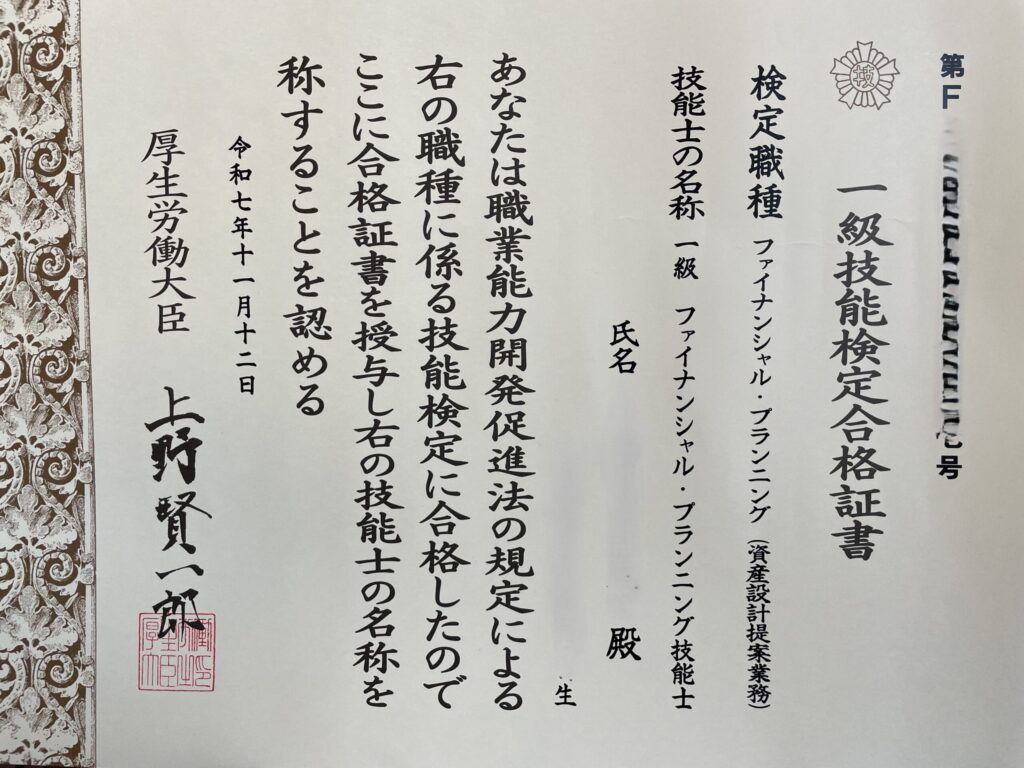 第F 号
技
一級技能検定合格証書
検定職種 ファイナンシャル・プランニング(資産設計提案業務)
技能士の名称 一級 ファイナンシャル・プランニング技能士
氏名 殿
生
あなたは職業能力開発促進法の規定による
右の職種に係る技能検定に合格したので
ここに合格証書を授与し右の技能士の名称を
称することを認める
令和七年十一月十二日
厚生労働大臣 上野賢一郎